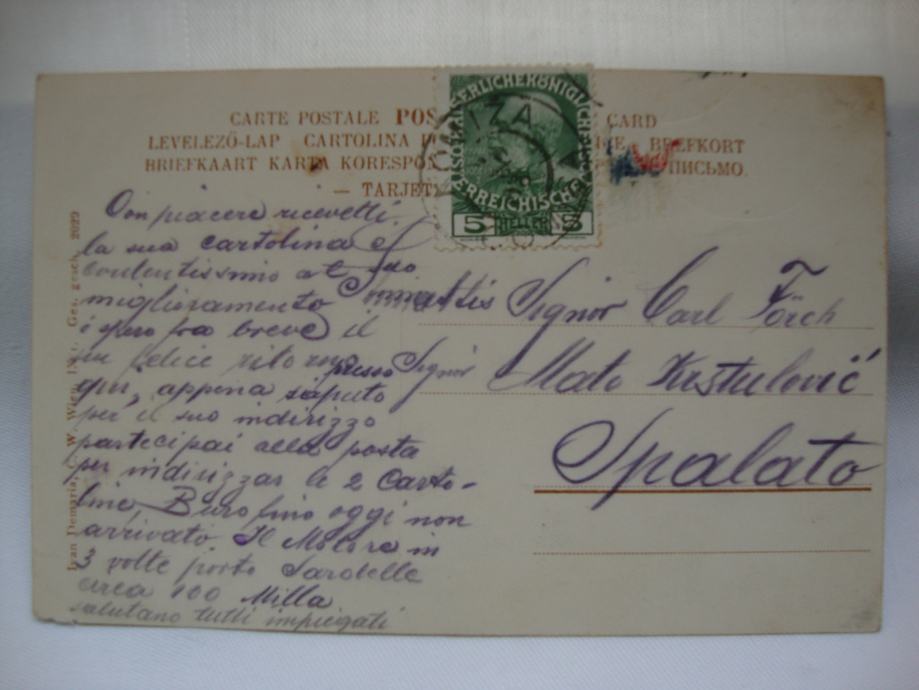 CARTE POSTALE POS CARD
LEVELEZŐ-LAP CARTOLINA BREFKORT
BRIEFKAART KARTA KORESPON ПИСЬМО.
— TARJET
KAISERLICHE KÖNIGLICHE
ÖSTERREICHISCHE
5 HELLER 5
Con piacere ricevetti
la sua cartolina
miglioramento
e spero fra breve il
felice ritorno
qui, appena saputo
per il suo indirizzo
partecipai alla posta
per indirizzar le 2 Carto-
line, Buro fino oggi non
arrivato Il Motore in
3 volte porto Sardelle
circa 100 Milla
salutano tutti impiegati
Signor Carl Förch
presso Signor Mato Krstulović
Spalato
Ges. gesch. 2029